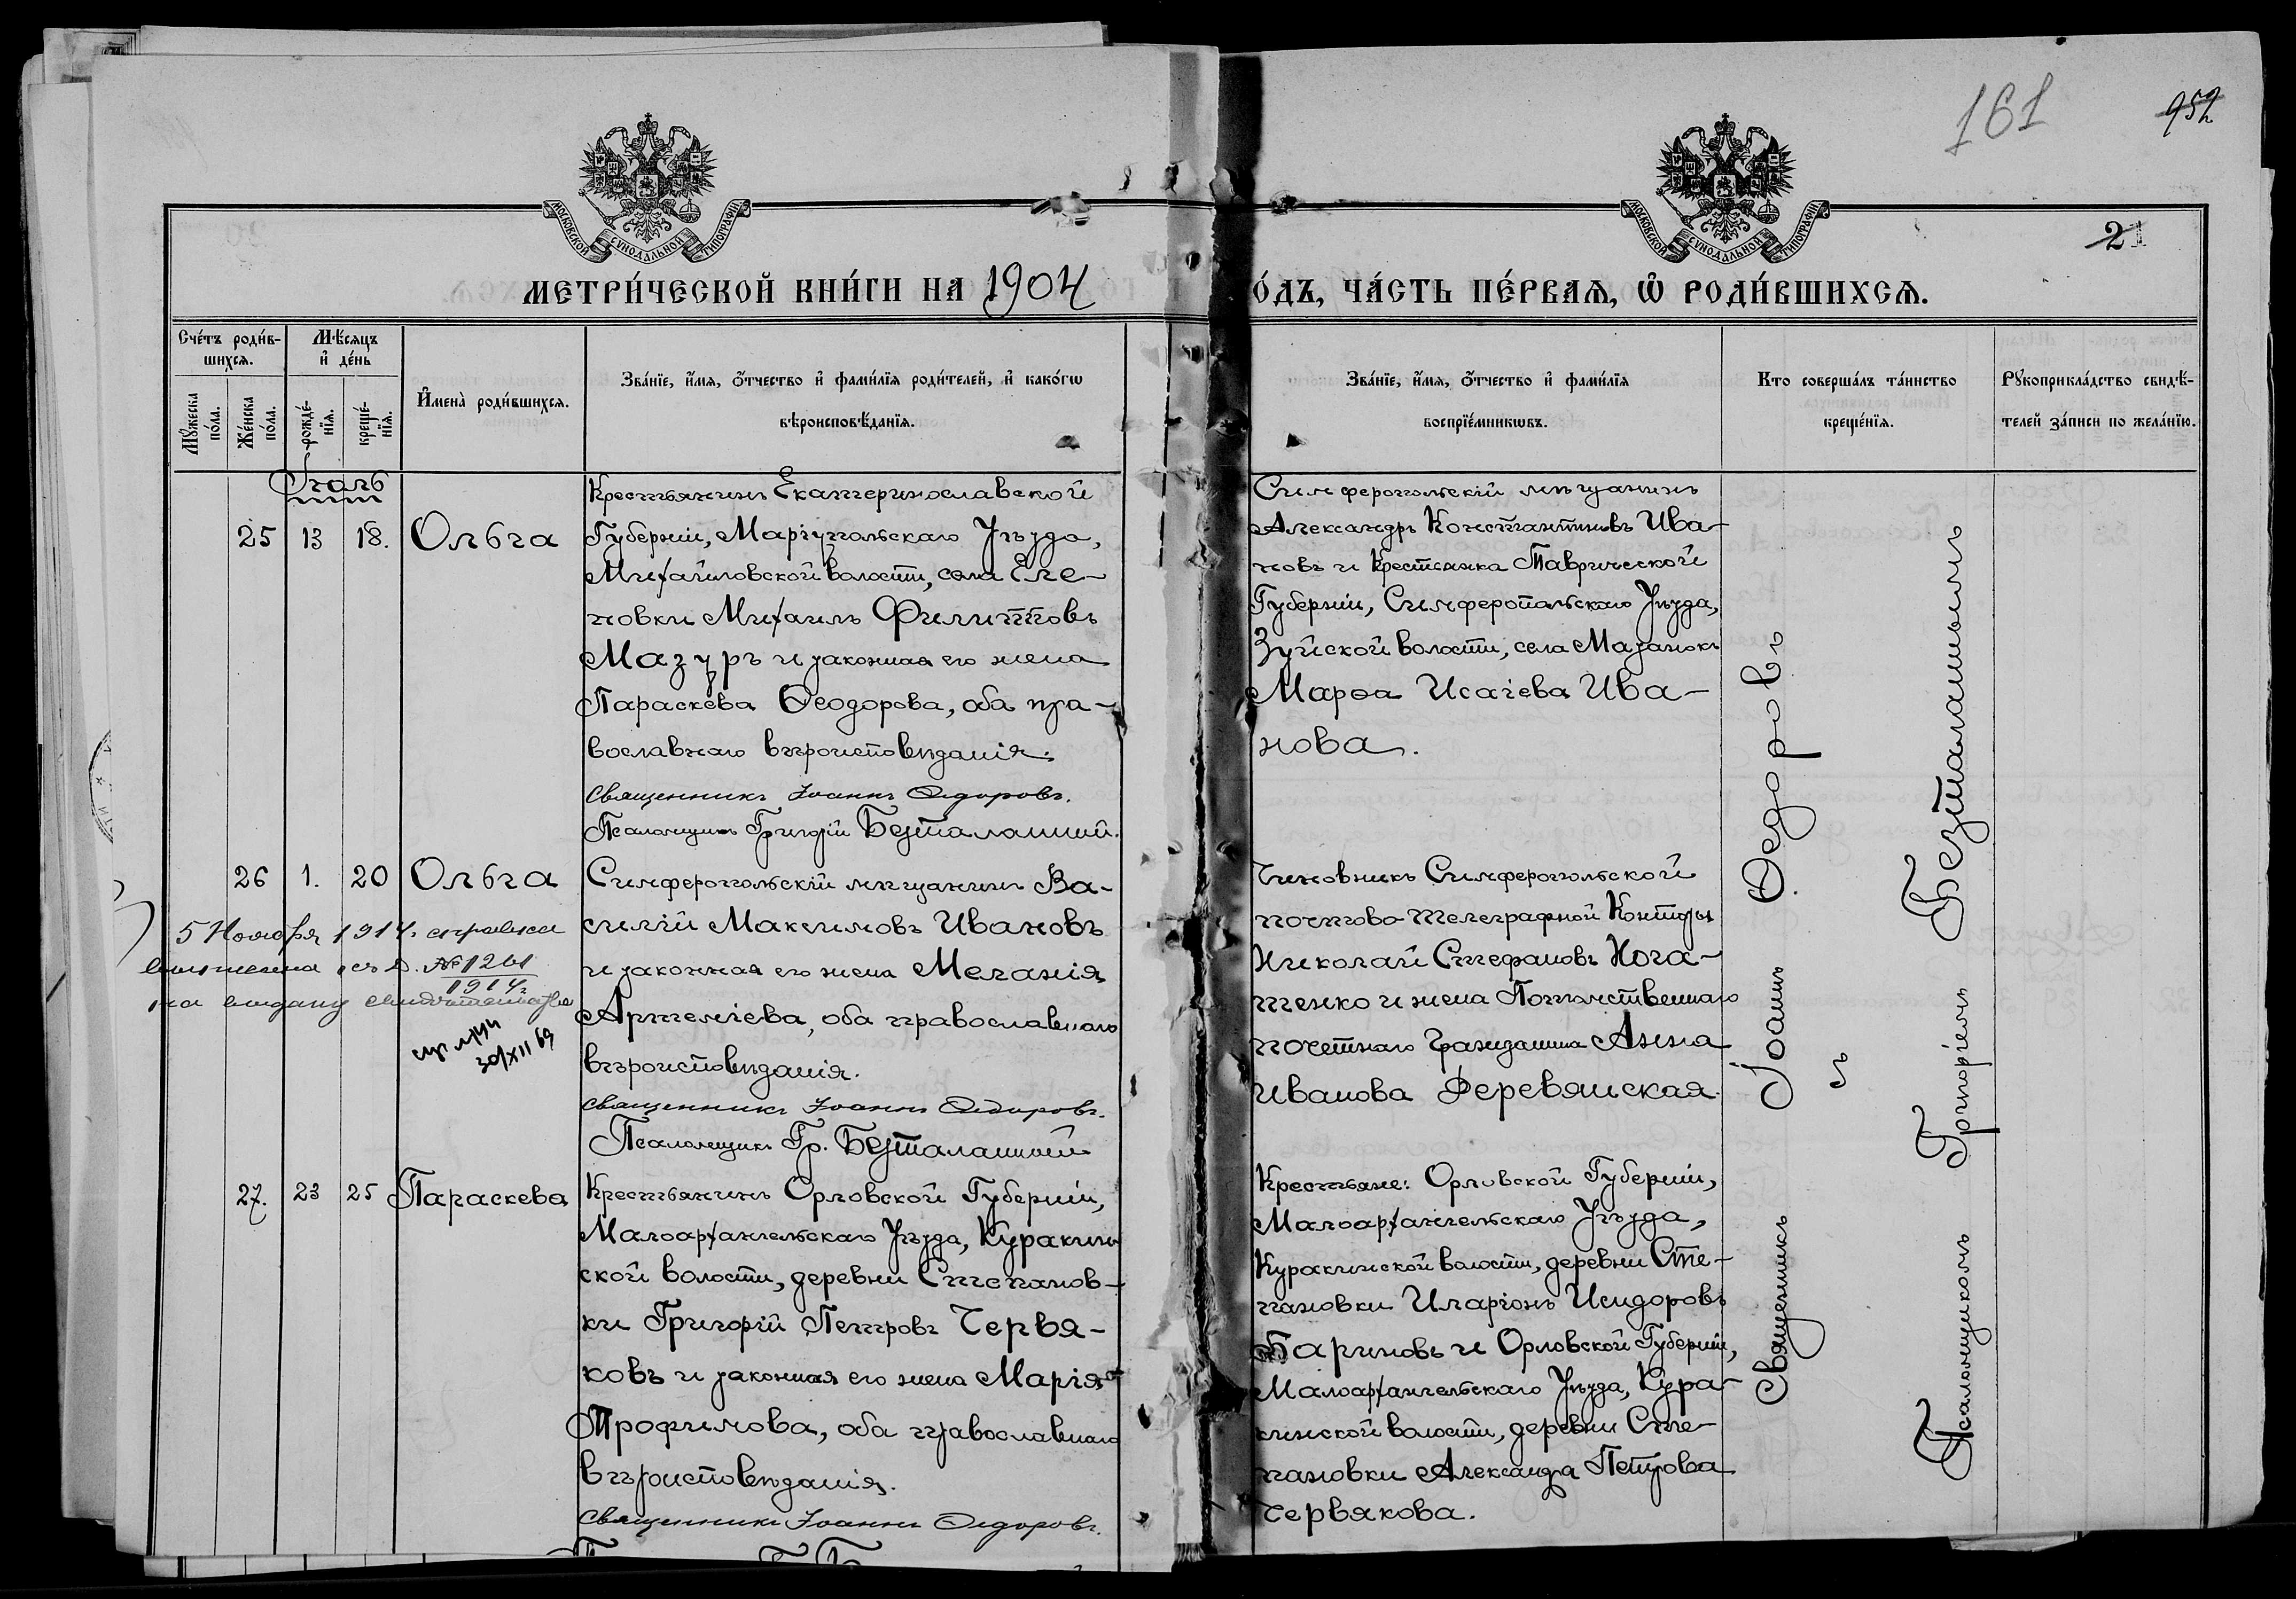 161
952
МОСКОВСКОЙ СѴНОДАЛЬНОЙ ТИПОГРАФІИ
МОСКОВСКОЙ СѴНОДАЛЬНОЙ ТИПОГРАФІИ
21
МЕТРИ́ЧЕСКОЙ КНИ́ГИ НА 1904
О́ДЪ, ЧА́СТЬ ПЕ́РВАЯ, Ѡ РОДИ́ВШИХСЯ.
Сче́тъ роди́в-
шихся.
Мꙋ́жеска
по́ла.
Же́нска
по́ла.
Мѣ́сяцъ
и де́нь
рожде́-
нїя.
креще́-
нїя.
Имена̀ роди́вшихся.
Зва́нїе, и́мя, ѻ́тчество и фами́лїя роди́телей, и како́гѡ
вѣроисповѣ́данїя.
Зва́нїе, и́мя, ѻ́тчество и фами́лїя
воспрїе́мникѡвъ.
Кто соверша́лъ та́инство
креще́нїя.
Рꙋкоприкла́дство свидѣ́-
телей за́писи по жела́нїю.
25 13 18. Ольга
Крестьянинъ Екатеринославской
Губерніи, Маріупольскаго Уѣзда,
Михайловской волости, села Еле-
новки Михаилъ Филипповъ
Мазуръ и законная его жена
Параскева Ѳеодорова, оба пра-
вославнаго вѣроисповѣданія.
Священникъ Іоаннъ Ѳедоровъ.
Псаломщикъ Григорій Безталанный.
Симферопольскій мѣщанинъ
Александръ Константиновъ Ива-
новъ и Крестьянка Таврической
Губерніи, Симферопольскаго Уѣзда,
Зуйской волости, села Мазанокъ
Марѳа Исаіева Ива-
нова.
26 1. 20 Ольга
5 Ноября 1914 г. справка
№ 1261
1914 г.
на выдачу свидѣтельства
30/XII 69
Симферопольскій мѣщанинъ Ва-
силій Максимовъ Ивановъ
и законная его жена Меланія
Артеміева, оба православнаго
вѣроисповѣданія.
Священникъ Іоаннъ Ѳедоровъ.
Псаломщикъ Гр. Безталанный
Чиновникъ Симферопольской
почтово-телеграфной Конторы
Николай Стефановъ Нога-
тенко и жена Потомственнаго
почетнаго Гражданина Анна
Иванова Деревянская.
27. 23 25 Параскева
Крестьянинъ Орловской Губерніи,
Малоархангельскаго Уѣзда, Куракин
ской волости, деревни Степанов-
ки Григорій Петровъ Червя-
ковъ и законная его жена Марія
Трофимова, оба православнаго
вѣроисповѣданія.
Священникъ Іоаннъ Ѳедоровъ.
Крестьяне: Орловской Губерніи,
Малоархангельскаго Уѣзда,
Куракинской волости, деревни Сте-
пановки Иларіонъ Исидоровъ
Бариновъ и Орловской Губерніи,
Малоархангельскаго Уѣзда, Кура-
кинской волости, деревни Сте-
пановки Александра Петрова
Червякова.
Священникъ Іоаннъ Ѳедоровъ
съ
Псаломщикомъ Григоріемъ Безталаннымъ